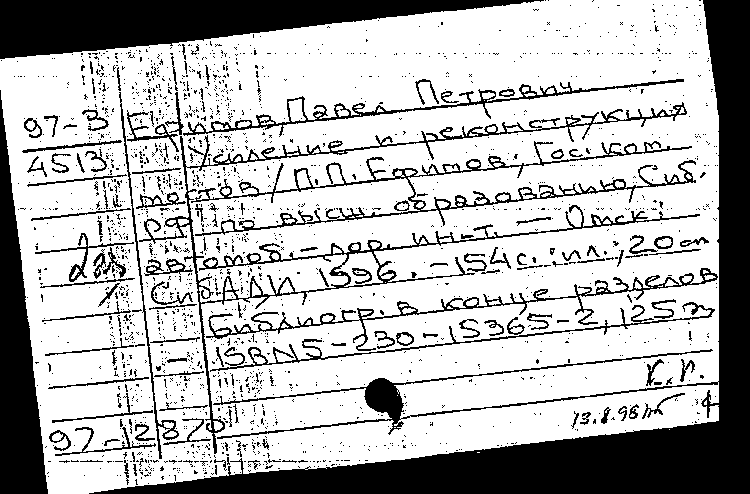 97-3 Ефимов, Павел Петрович.
4513 Усиление и реконструкция
мостов / П.П. Ефимов; Гос. ком.
РФ по высш. образованию, Сиб.
автомоб.-дор. ин-т. — Омск:
СибАДИ, 1996. - 154 с.: ил.; 20 см.
Библиогр. в конце разделов
. — ISBN 5-230-15365-2, 125 э
К.П.
97-12870